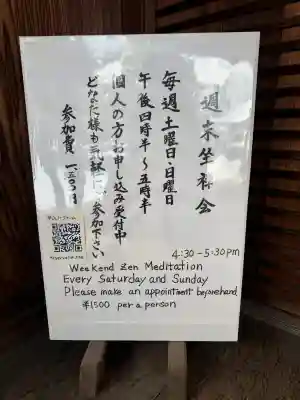 週末坐禅会
毎週土曜日・日曜日
午後四時半～五時半
個人の方お申し込み受付中
どなた様も気軽にご参加下さい
参加費
4:30-5:30pm
Weekend Zen Meditation
Every Saturday and Sunday
Please make an appointment beforehand
¥1500 per a person